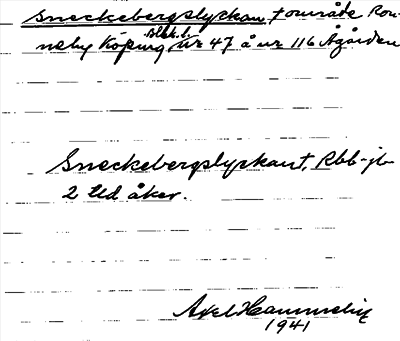 Sneckebergslyckan område Ron-
neby Köping Blek. l. nr 47 å nr 116 Ågården
Sneckebergslyckant, Rbb-jb
2 tld åker.
Axel Hammelin
1941